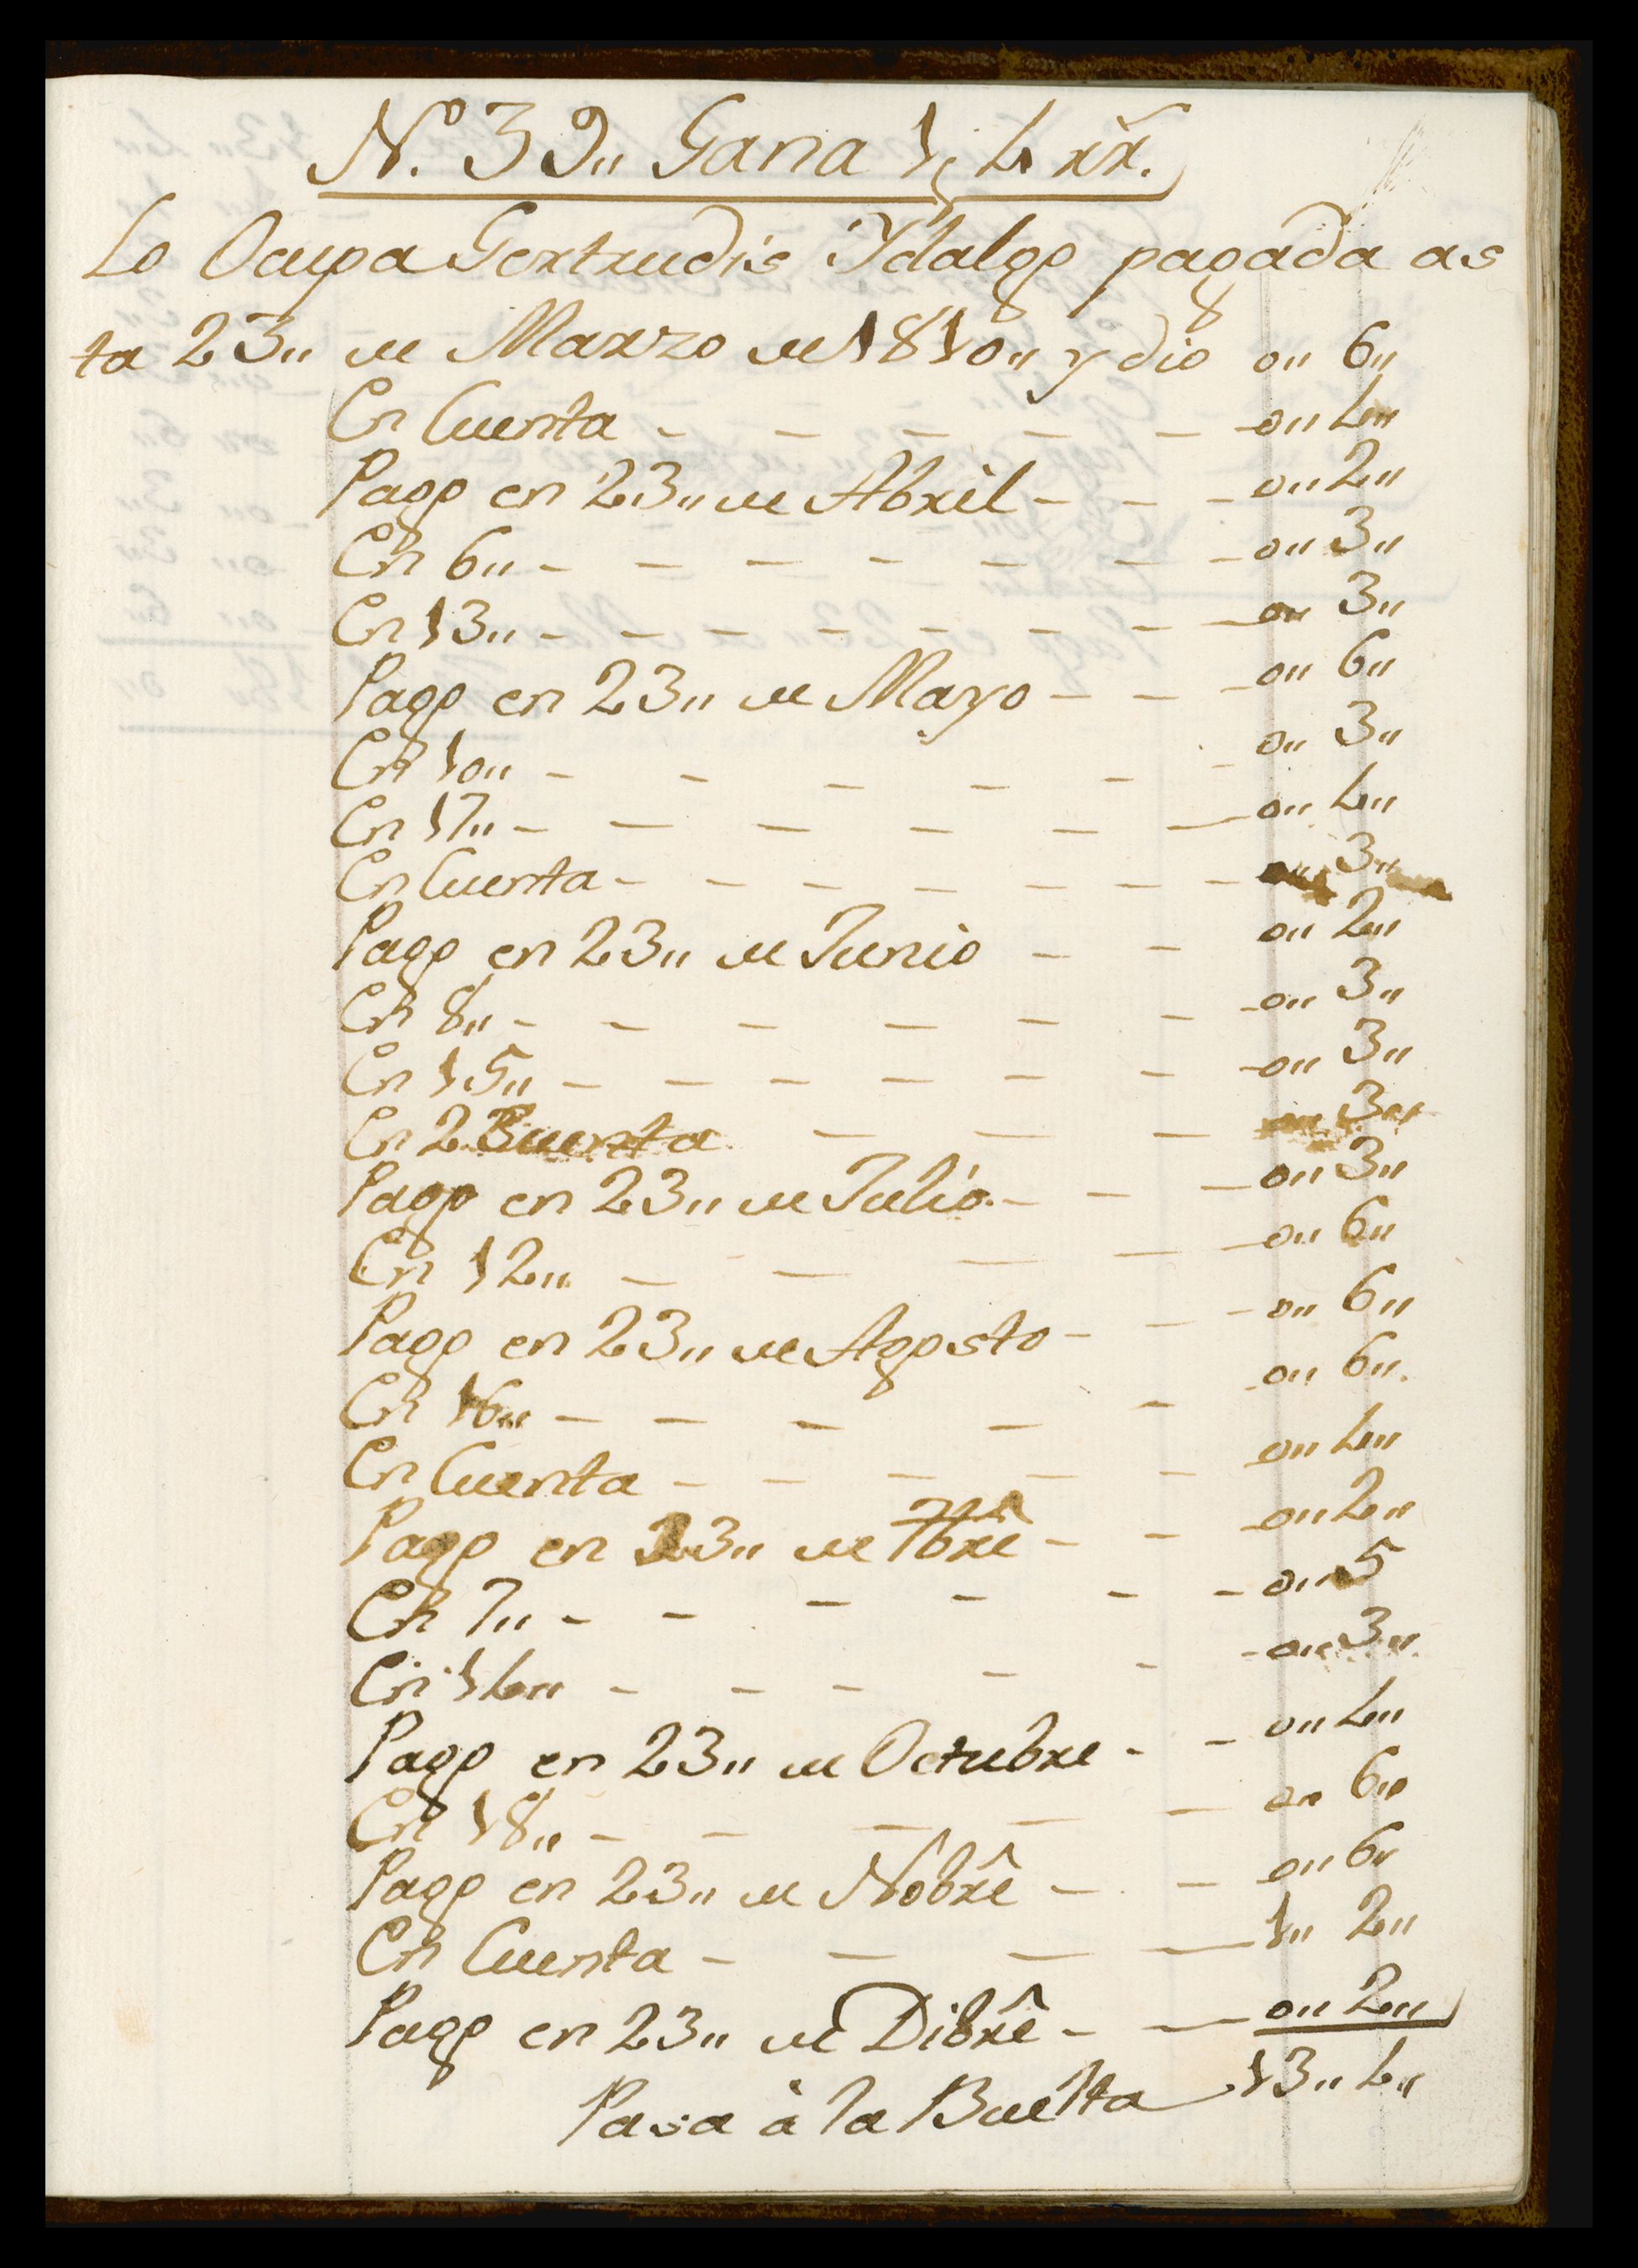 N.º 39,, Gana 1; 4 rr̃.
Lo Ocupa Gertrudis Ydalgo pagada as
ta 23,, de Marzo de 1810,, y dio 0,, 6,,
En Cuenta - - - - - 0,, 4,,
Pago en 23,, de Abril - - - 0,, 2,,
En 6,, - - - - - - - 0,, 3,,
En 13,, - - - - - - - - 0,, 3,,
Pago en 23,, de Mayo - - - 0,, 6,,
En 10,, - - - - - - 0,, 3,,
En 17,, - - - - - - 0,, 4,,
En Cuenta - - - - - - - 0,, 3,,
Pago en 23,, de Junio - - 0,, 2,,
En 8,, - - - - - - - 0,, 3,,
En 15,, - - - - - - - 0,, 3,,
En 23 - - - 0,, 3,,
Pago en 23,, de Julio. - - - 0,, 3,,
En 12,, - - - - - 0,, 6,,
Pago en 23,, de Agosto - - - 0,, 6,,
En 16,, - - - - - 0,, 6,,
En Cuenta - - - - - 0,, 4,,
Pago en 23,, de 7brê - - 0,, 2,,
En 7,, - - - - - - 0,, 5
En 14,, - - - - - - 0,, 3,,
Pago en 23,, de Octubre - - 0,, 4,,
En 18,, - - - - - 0,, 6,,
Pago en 23,, de Nobrê - - 0,, 6,,
En Cuenta - - - - 1,, 2,,
Pago en 23,, de Dibrê - - 0,, 2,,
Pasa à la Buelta 13,, 4,,